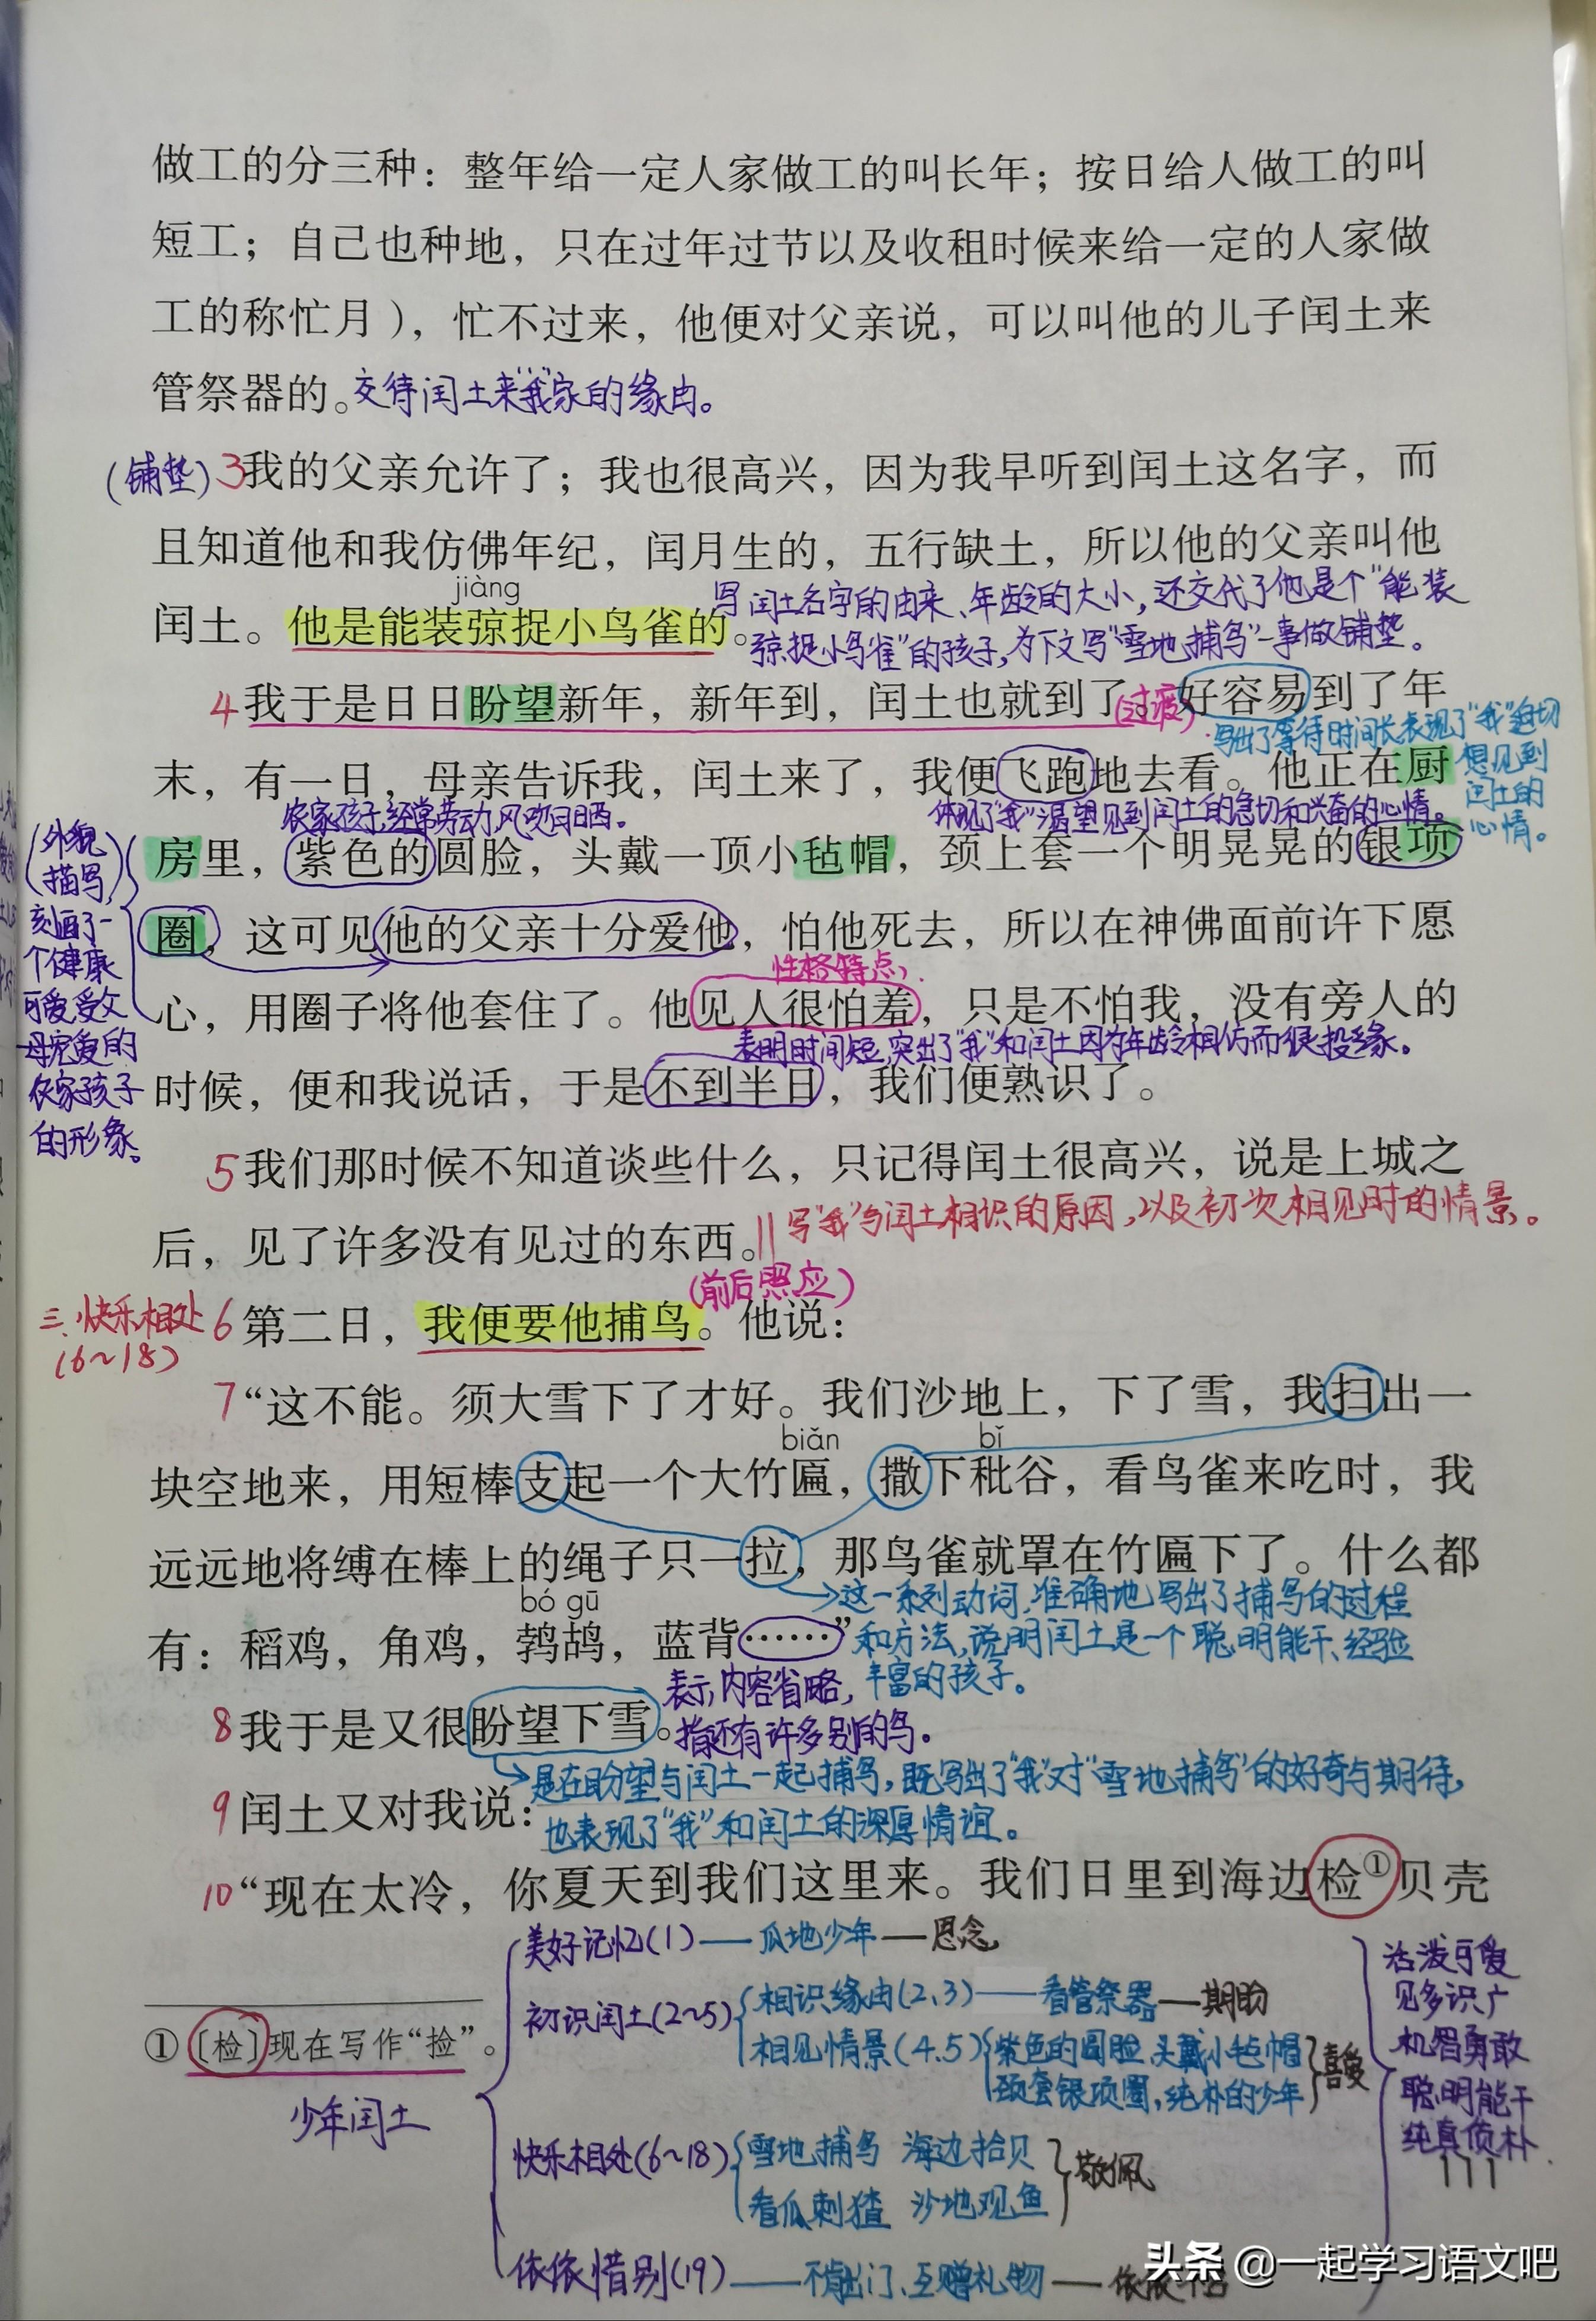 做工的分三种：整年给一定人家做工的叫长年；按日给人做工的叫
短工；自己也种地，只在过年过节以及收租时候来给一定的人家做
工的称忙月），忙不过来，他便对父亲说，可以叫他的儿子闰土来
管祭器的。交待闰土来"我"家的缘由。
（铺垫）3我的父亲允许了；我也很高兴，因为我早听到闰土这名字，而
且知道他和我仿佛年纪，闰月生的，五行缺土，所以他的父亲叫他
jiàng
闰土。他是能装弶捉小鸟雀的。
写闰土名字的由来、年龄的大小，还交代了他是个"能装
弶捉小鸟雀"的孩子，为下文写"雪地捕鸟"一事做铺垫。
4我于是日日盼望新年，新年到，闰土也就到了。（过渡）好容易到了年
写出了等待时间长表现了"我"迫切
想见到
闰土的
心情。
末，有一日，母亲告诉我，闰土来了，我便飞跑地去看。他正在厨
农家孩子，经常劳动，风吹日晒。
体现了"我"渴望见到闰土的急切和兴奋的心情。
房里，紫色的圆脸，头戴一顶小毡帽，颈上套一个明晃晃的银项
（外貌
描写）
刻画了一
个健康
可爱受父
母宠爱的
农家孩子
的形象。
圈，这可见他的父亲十分爱他，怕他死去，所以在神佛面前许下愿
性格特点
心，用圈子将他套住了。他见人很怕羞，只是不怕我，没有旁人的
表明时间短，突出了"我"和闰土因为年龄相仿而很投缘。
时候，便和我说话，于是不到半日，我们便熟识了。
5我们那时候不知道谈些什么，只记得闰土很高兴，说是上城之
后，见了许多没有见过的东西。‖写"我"与闰土相识的原因，以及初次相见时的情景。
（前后照应）
三、快乐相处
（6~18）
6第二日，我便要他捕鸟。他说：
7“这不能。须大雪下了才好。我们沙地上，下了雪，我扫出一
biǎn bǐ
块空地来，用短棒支起一个大竹匾，撒下秕谷，看鸟雀来吃时，我
远远地将缚在棒上的绳子只一拉，那鸟雀就罩在竹匾下了。什么都
bó gū
有：稻鸡，角鸡，鹁鸪，蓝背……”
这一系列动词，准确地写出了捕鸟的过程
和方法，说明闰土是一个聪明能干、经验
丰富的孩子。
表示内容省略，
指还有许多别的鸟。
8我于是又很盼望下雪。
是在盼望与闰土一起捕鸟，既写出了"我"对"雪地捕鸟"的好奇与期待，
也表现了"我"和闰土的深厚情谊。
9闰土又对我说：
10“现在太冷，你夏天到我们这里来。我们日里到海边检①贝壳
①［检］现在写作“捡”。
少年闰土
美好记忆（1）——瓜地少年——思念
初识闰土（2~5）
相识缘由（2、3）——看管祭器——期盼
相见情景（4、5）
紫色的圆脸、头戴小毡帽
颈套银项圈，纯朴的少年
喜爱
快乐相处（6~18）
雪地捕鸟 海边拾贝
看瓜刺猹 沙地观鱼
敬佩
依依惜别（19）——不肯出门、互赠礼物——依依
活泼可爱
见多识广
机智勇敢
聪明能干
纯真质朴
111
头条 @一起学习语文吧